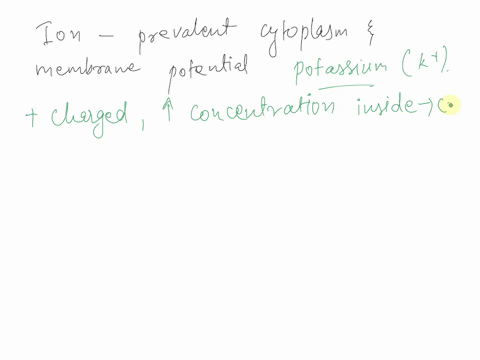 Ion - prevalent cytoplasm &
membrane potential potassium (K+).
+ charged, ↑ concentration inside → c